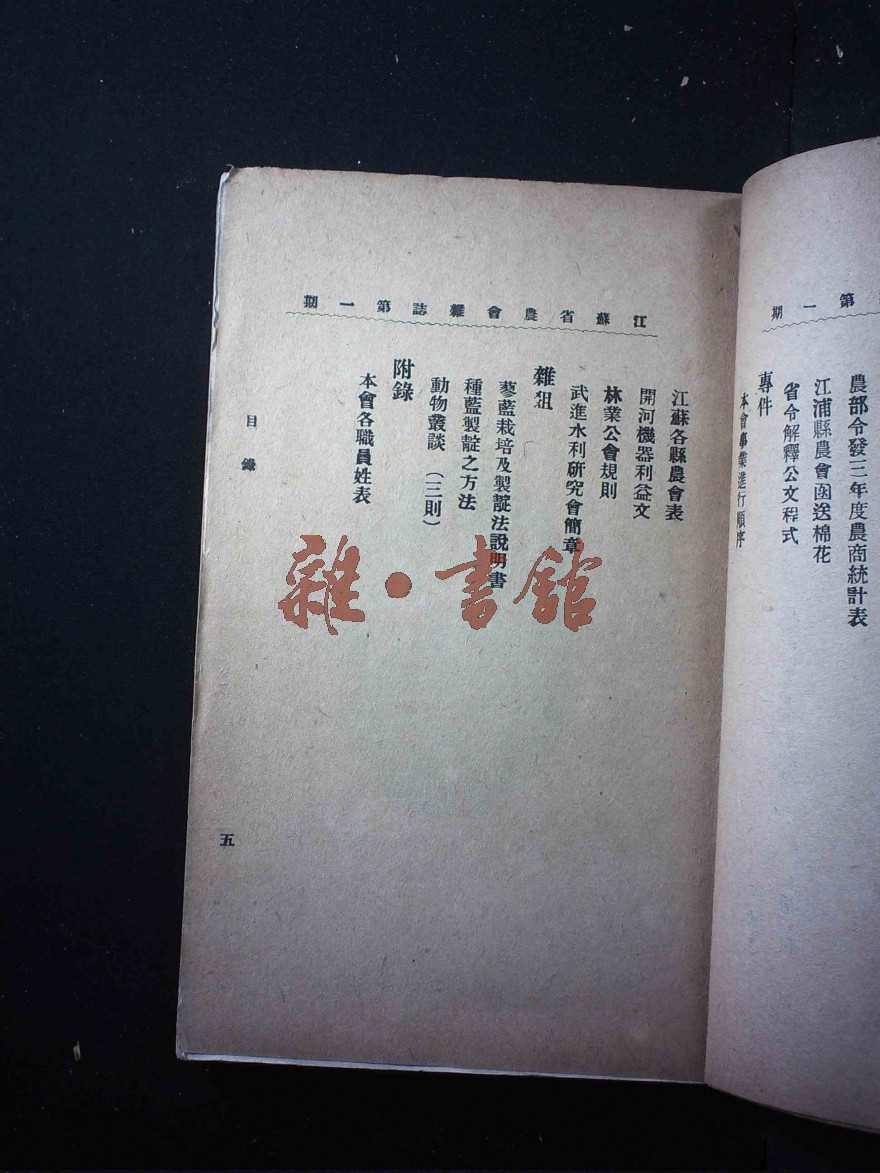 第一期
農部令發三年度農商統計表
江浦縣農會函送棉花
省令解釋公文程式
專件
本會事業進行順序
江蘇省農會雜誌第一期
江蘇各縣農會表
開河機器利益文
林業公會規則
武進水利研究會簡章
雜俎
蓼藍栽培及製靛法說明書
種藍製靛之方法
動物叢談（三則）
附錄
本會各職員姓表
目錄
五
雜·書館